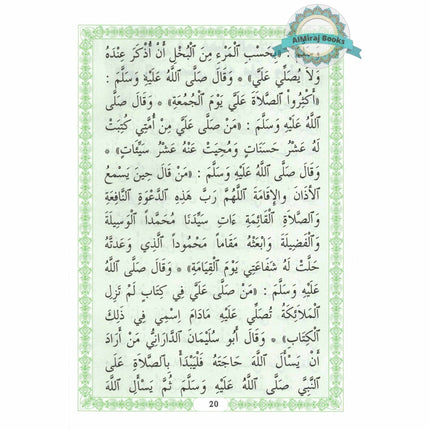 AlMiraj Books
: «بِحَسْبِ الْمَرْءِ مِنَ الْبُخْلِ أَنْ أُذْكَرَ عِنْدَهُ
وَلاَ يُصَلِّي عَلَيَّ» * وَقَالَ صَلَّى اللَّهُ عَلَيْهِ وَسَلَّمَ :
«أَكْثِرُوا الصَّلاَةَ عَلَيَّ يَوْمَ الْجُمُعَةِ» * وَقَالَ صَلَّى
اللَّهُ عَلَيْهِ وَسَلَّمَ : «مَنْ صَلَّى عَلَيَّ مِنْ أُمَّتِي كُتِبَتْ
لَهُ عَشْرُ حَسَنَاتٍ وَمُحِيَتْ عَنْهُ عَشْرُ سَيِّئَاتٍ» *
وَقَالَ صَلَّى اللَّهُ عَلَيْهِ وَسَلَّمَ : «مَنْ قَالَ حِينَ يَسْمَعُ
الْأَذَانَ وَالإِقَامَةَ اللَّهُمَّ رَبَّ هَذِهِ الدَّعْوَةِ النَّافِعَةِ
وَالصَّلاَةِ الْقَائِمَةِ ءَاتِ سَيِّدَنَا مُحَمَّداً الْوَسِيلَةَ
وَالْفَضِيلَةَ وَابْعَثْهُ مَقَاماً مَحْمُوداً الَّذِي وَعَدتَّهُ
حَلَّتْ لَهُ شَفَاعَتِي يَوْمَ الْقِيَامَةِ» * وَقَالَ صَلَّى اللَّهُ
عَلَيْهِ وَسَلَّمَ : «مَنْ صَلَّى عَلَيَّ فِي كِتَابٍ لَمْ تَزِلِ
الْمَلاَئِكَةُ تُصَلِّي عَلَيْهِ مَادَامَ اِسْمِي فِي ذَلِكَ
الْكِتَابِ» * وَقَالَ أَبُو سُلَيْمَانَ الدَّارَانِيُّ مَنْ أَرَادَ
أَنْ يَسْأَلَ اللَّهَ حَاجَتَهُ فَلْيَبْدَأْ بِالصَّلاَةِ عَلَى
النَّبِيِّ صَلَّى اللَّهُ عَلَيْهِ وَسَلَّمَ ثُمَّ يَسْأَلِ اللَّهَ
20